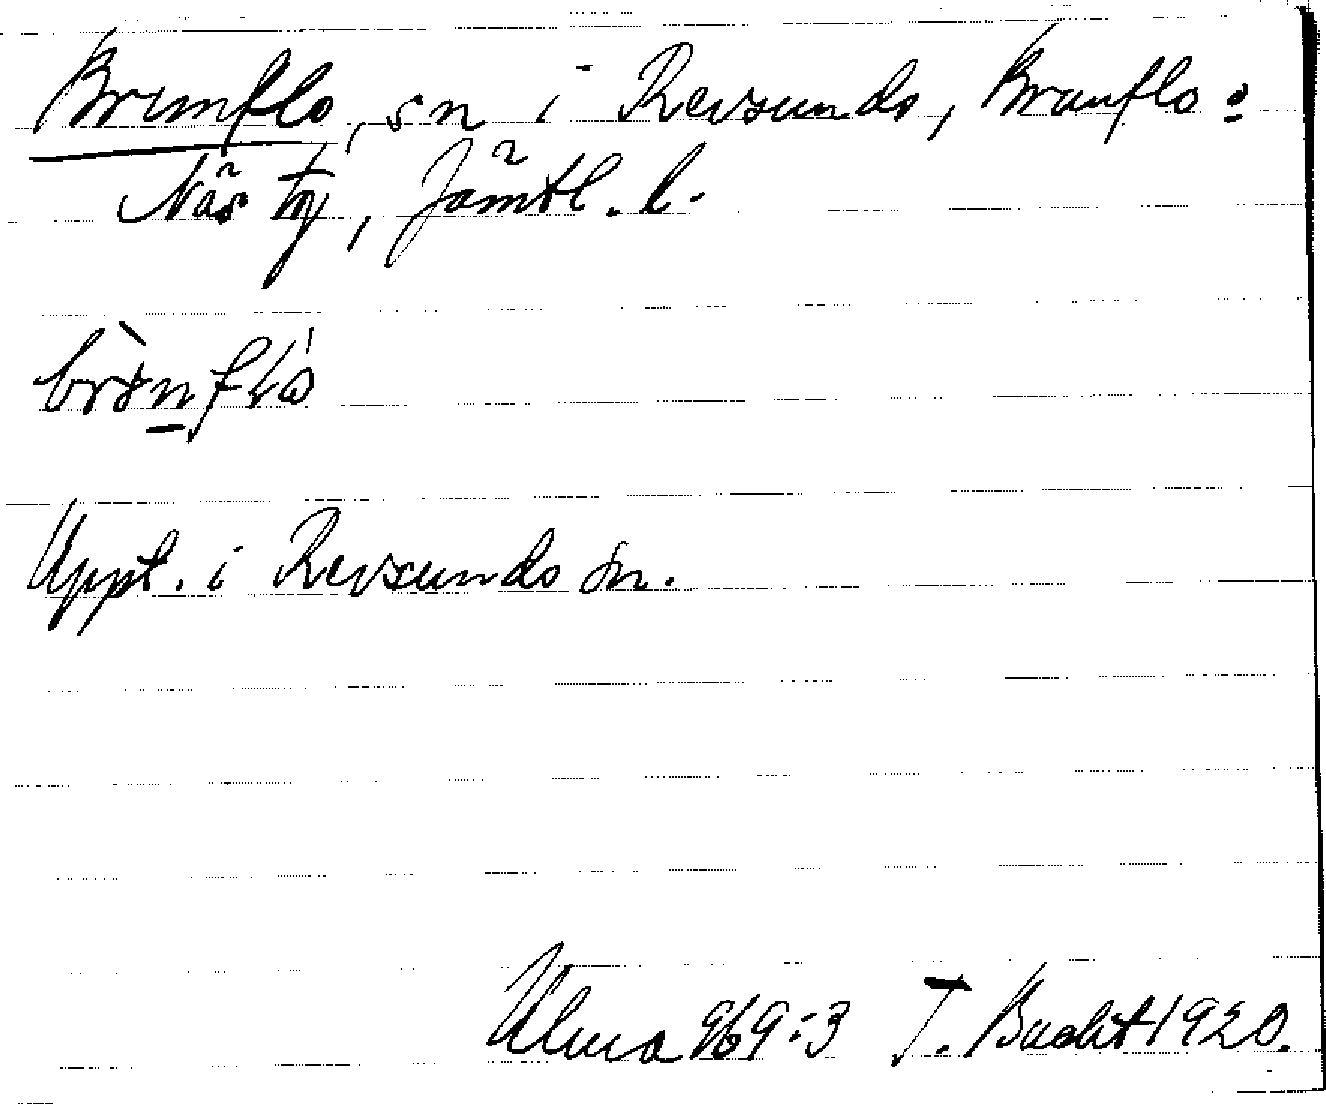 Brunflo, sn i Revsunds, Brunflo o
Näs tg, Jämtl. l.
Uppt. i Revsunds sn.
Ulma 969:3 T. Bucht 1920.